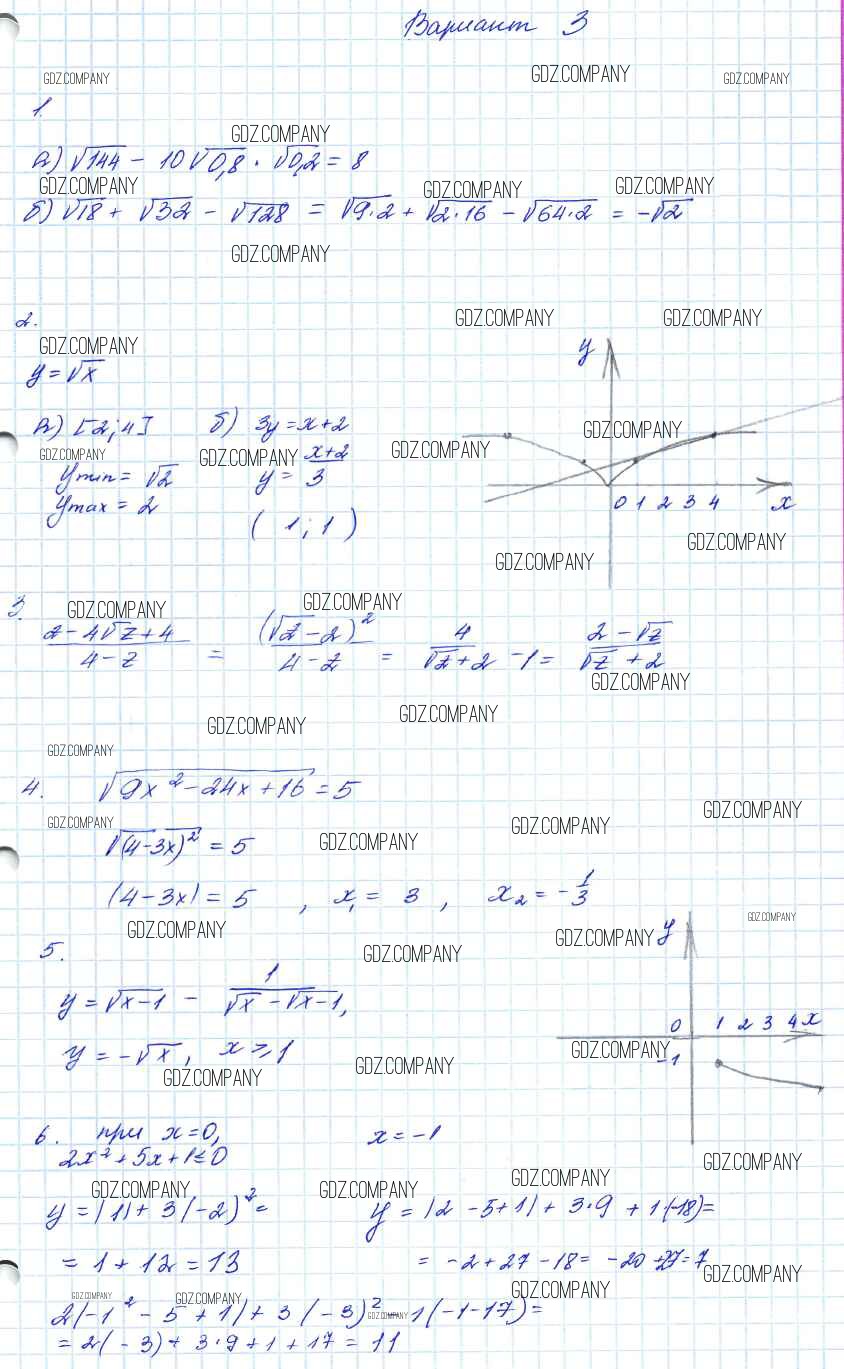 Вариант 3
GDZ.COMPANY GDZ.COMPANY GDZ.COMPANY
1.
GDZ.COMPANY
а) √144 - 10√0,8 · √0,2 = 8
GDZ.COMPANY GDZ.COMPANY GDZ.COMPANY
б) √18 + √32 - √128 = √9·2 + √2·16 - √64·2 = -√2
GDZ.COMPANY
2.
GDZ.COMPANY GDZ.COMPANY
GDZ.COMPANY
y = √x
y
а) [2; 4] б) 3y = x+2
GDZ.COMPANY
GDZ.COMPANY GDZ.COMPANY GDZ.COMPANY
y min = √2 y = x+2 / 3
y max = 2
0 1 2 3 4 x
(1; 1)
GDZ.COMPANY
GDZ.COMPANY
3.
GDZ.COMPANY GDZ.COMPANY
z - 4√z + 4 / 4 - z = (√z - 2)² / 4 - z = 4 / √z + 2 - 1 = 2 - √z / √z + 2
GDZ.COMPANY
GDZ.COMPANY GDZ.COMPANY
GDZ.COMPANY
4. √9x² - 24x + 16 = 5
GDZ.COMPANY
GDZ.COMPANY GDZ.COMPANY GDZ.COMPANY
√(4-3x)² = 5
(4-3x) = 5 , x₁ = 3 , x₂ = -1/3
GDZ.COMPANY
GDZ.COMPANY GDZ.COMPANY y
5.
GDZ.COMPANY
y = √x-1 - 1 / √x - √x-1,
0 1 2 3 4 x
y = -√x, x ⩾ 1
GDZ.COMPANY -1
GDZ.COMPANY GDZ.COMPANY
6. при x=0, x = -1
2x² + 5x + 1 ≤ 0
GDZ.COMPANY
GDZ.COMPANY GDZ.COMPANY GDZ.COMPANY
y = |1| + 3(-2)² = y = |2 - 5+1| + 3·9 + 1(-18)=
= 1 + 12 = 13 = -2 + 27 - 18 = -20 + 27 = 7
GDZ.COMPANY
GDZ.COMPANY GDZ.COMPANY GDZ.COMPANY
2(-1² - 5 + 1) + 3(-3)² - 1(-1-17) =
GDZ.COMPANY
= 2(-3) + 3·9 + 1 + 17 = 11